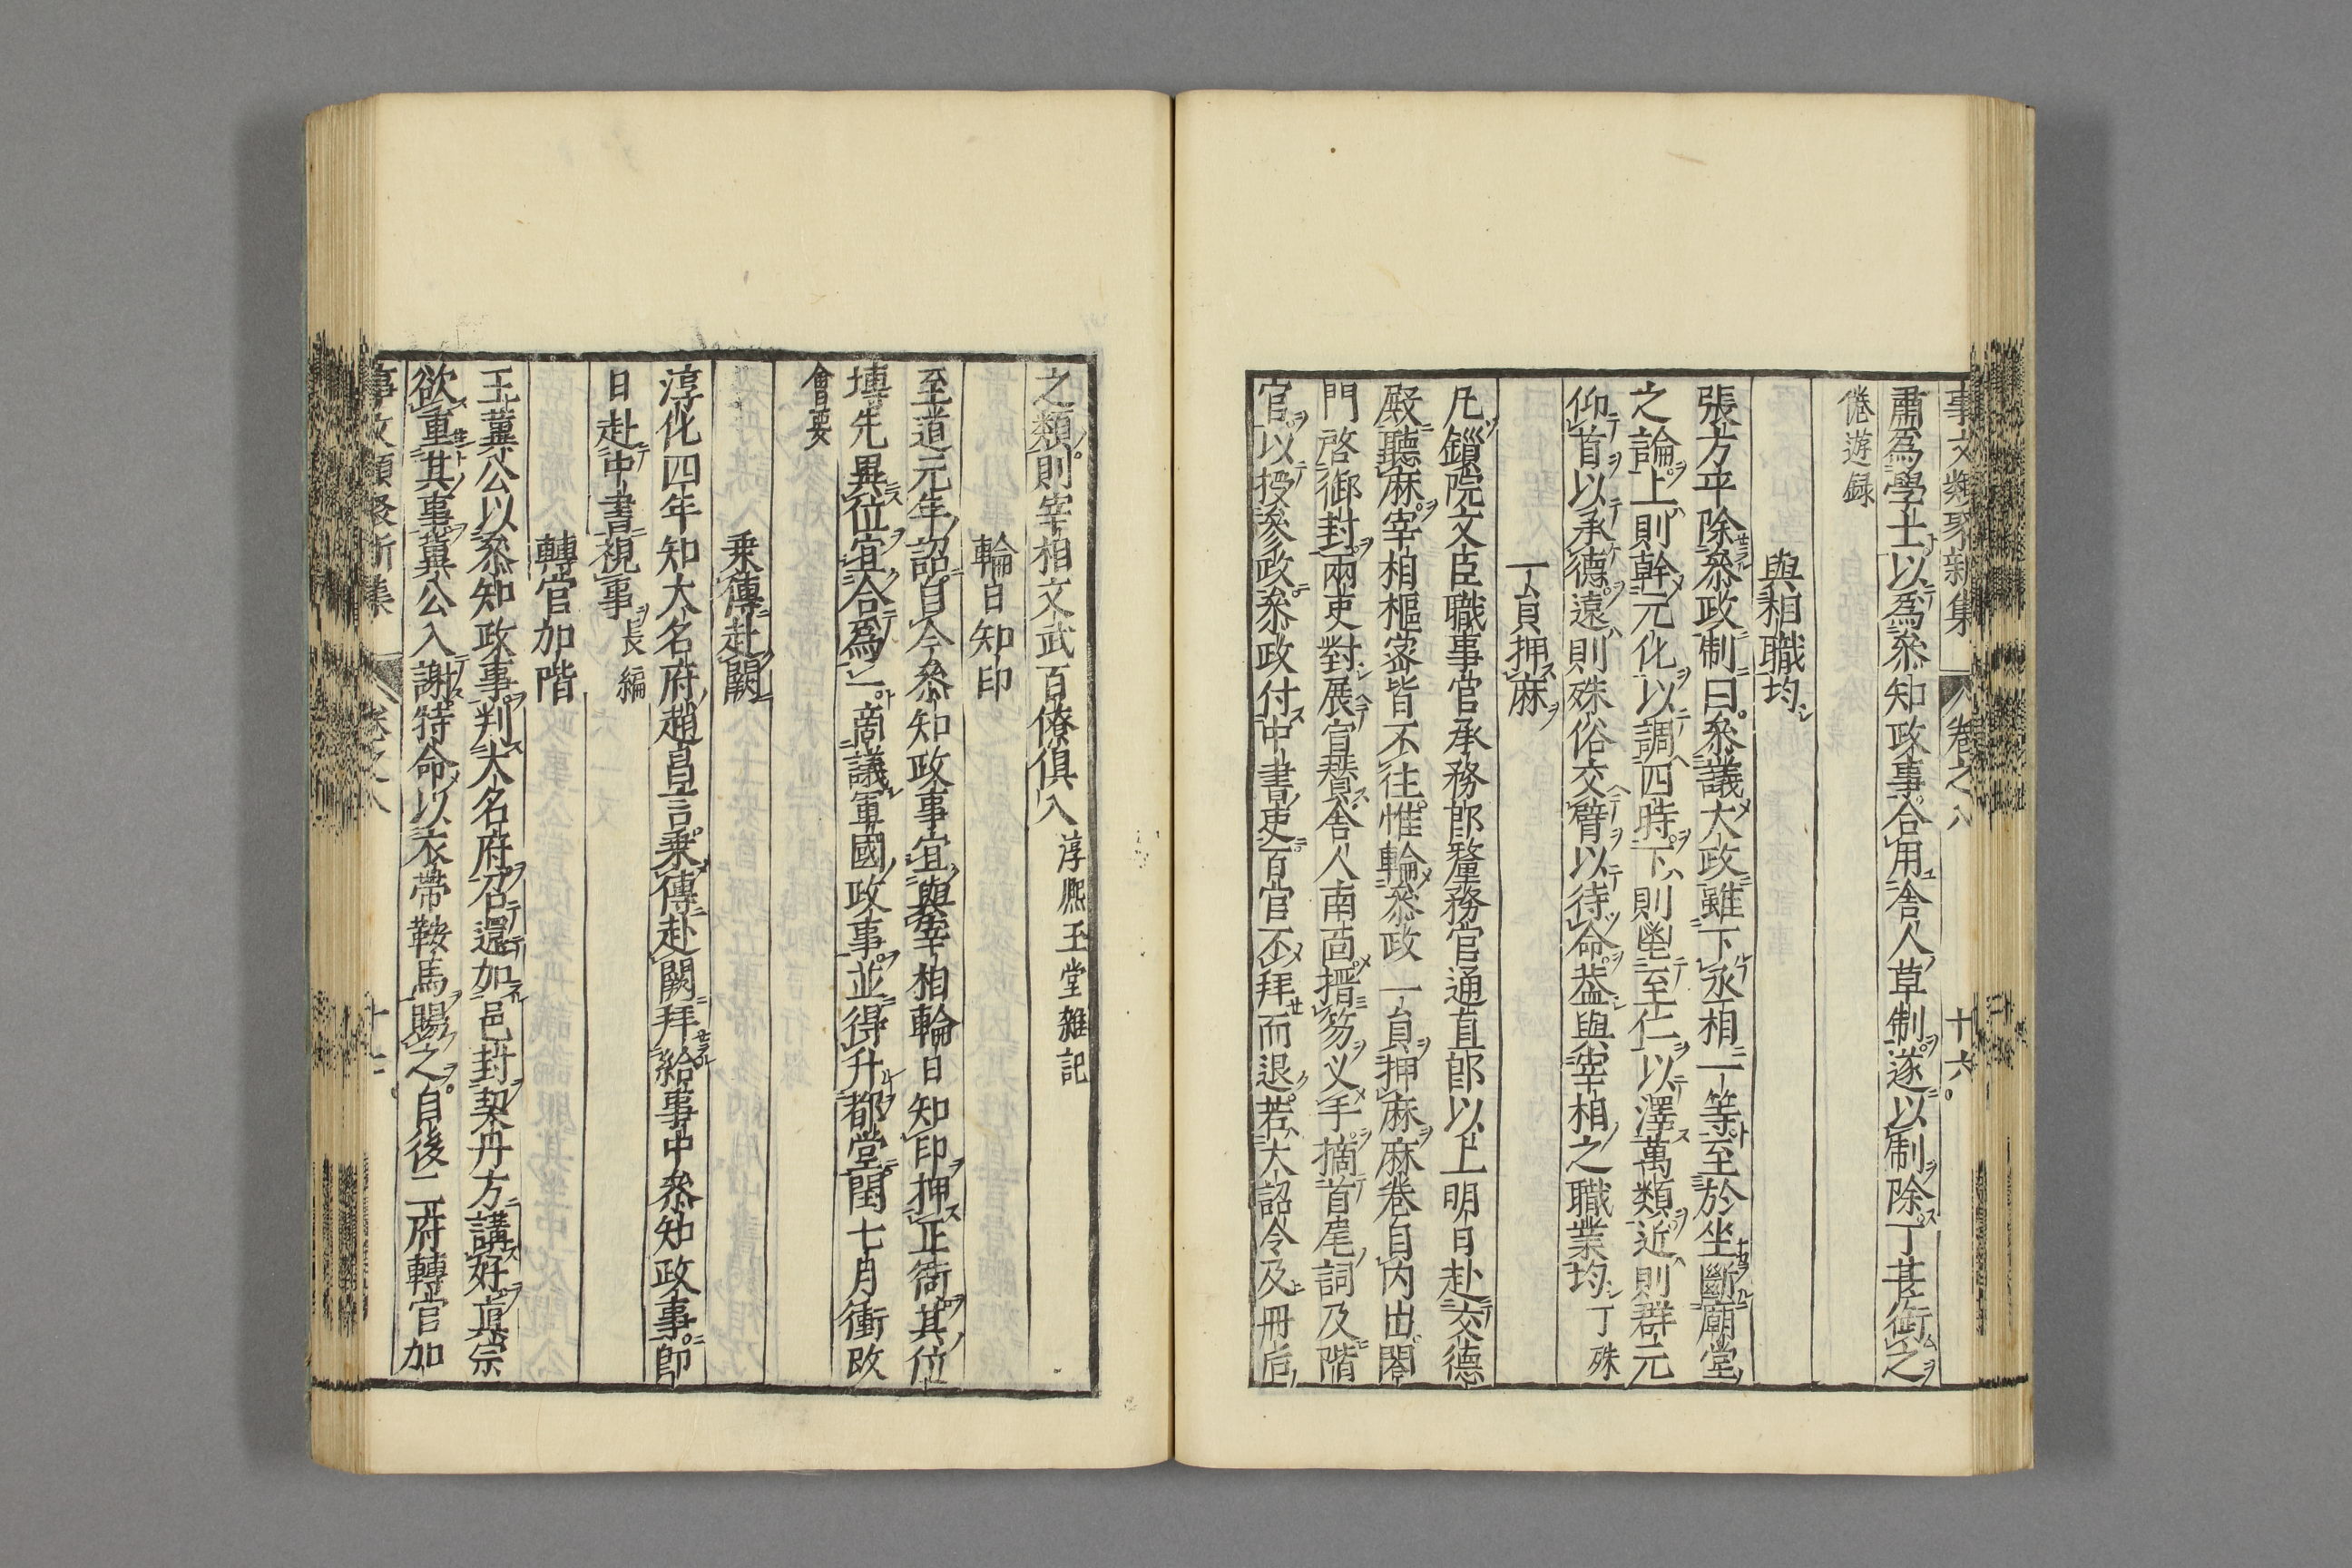 事文類聚新集 卷之八 十六
肅爲學士以爲叅知政事合用舍人草制遂以制除丁甚銜之
倦遊録
與相職均
張方平除叅政制曰叅議大政雖下丞相一等至於坐斷廟堂
之論上則幹元化以調四時下則墍至仁以澤萬類近則群元
仰首以承德遠則殊俗交臂以待命葢與宰相之職業均丁殊
一員押麻
凡鎖院文臣職事官承務郎釐務官通直郎以上明日赴文德
殿聽麻宰相樞宻皆不往惟輪叅政一員押麻麻卷自内出閤
門啓御封兩吏對展宣賛舍人南面搢笏义手摘首尾詞及階
官以授叅政叅政付中書吏百官不拜而退若大詔令及冊后
之類則宰相文武百僚俱入淳熈玉堂雜記
輪日知印
至道元年詔自今叅知政事宜與宰相輪日知印押正衙其位
塼先異位宜合爲一商議軍國政事並得升都堂閏七月衝改
會要
乗傳赴闕
淳化四年知大名府趙昌言乗傳赴闕拜給事中叅知政事即
日赴中書視事長編
轉官加階
王冀公以叅知政事判大名府召還加邑封契丹方講好真宗
欲重其事冀公入謝特命以衣帶鞍馬賜之自後二府轉官加
事文類聚新集 卷之八 十七